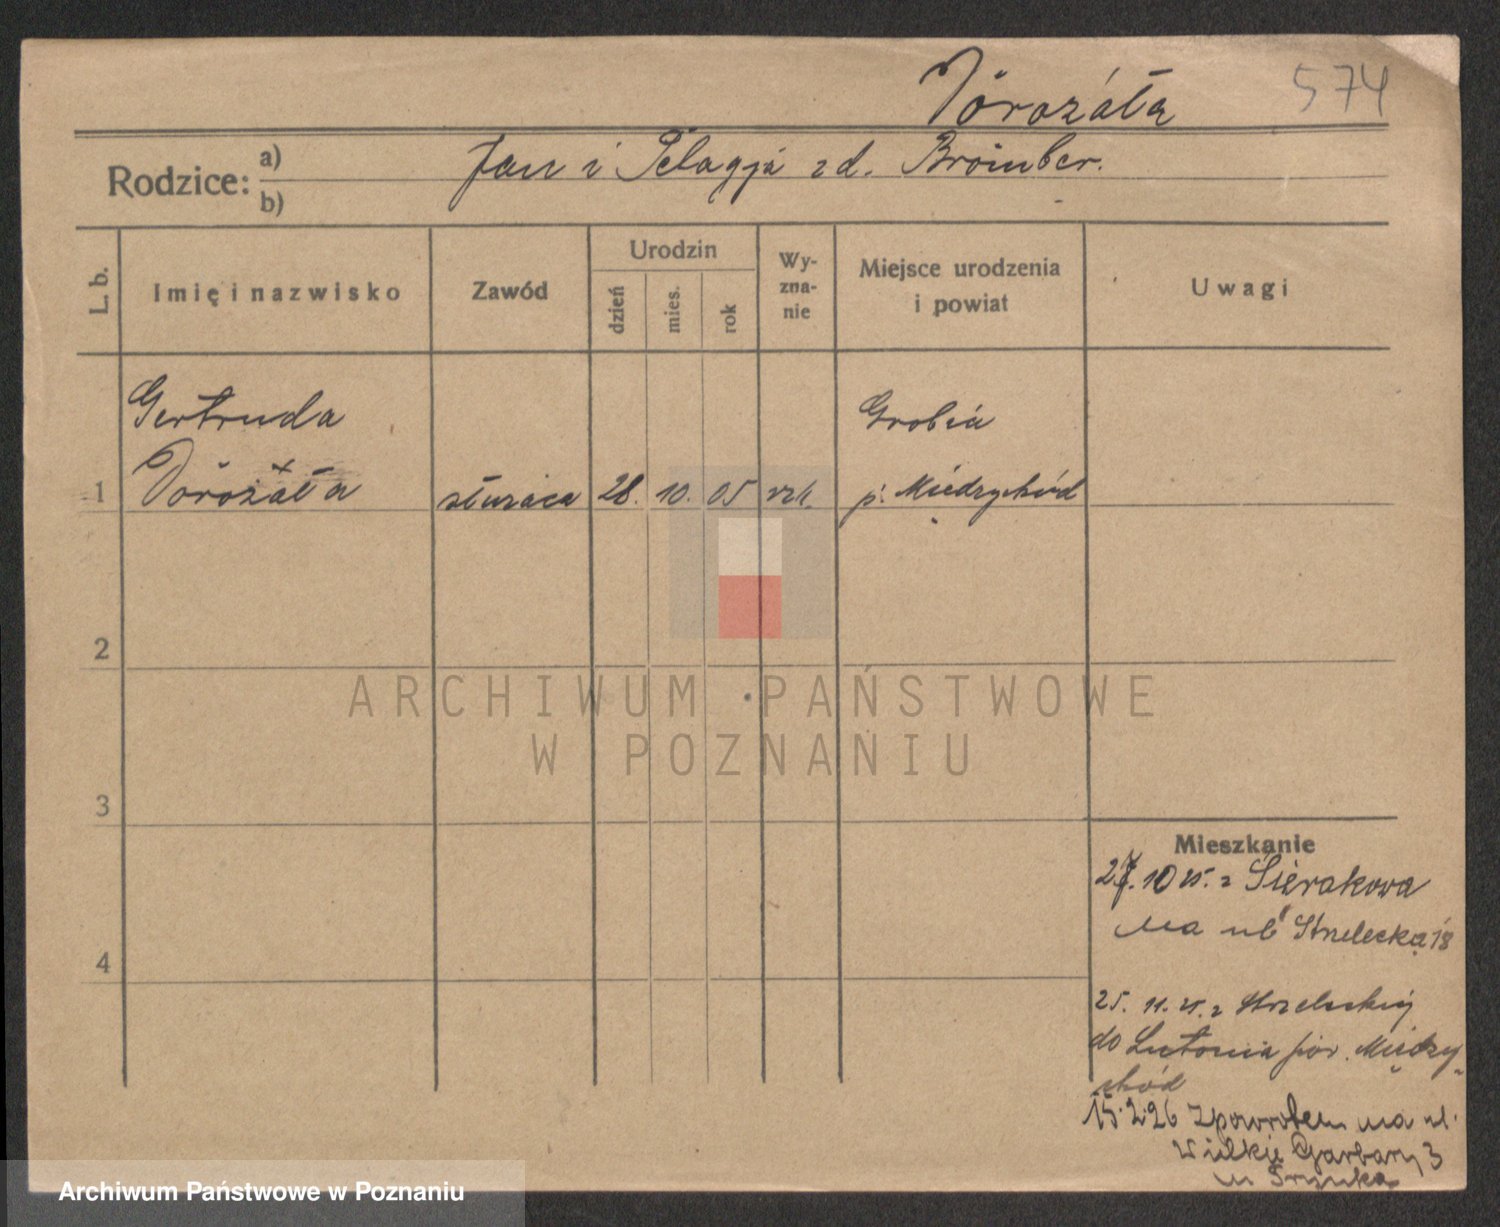 Vörozáła 574
Rodzice: a) Jan i Pelagja zd. Bromber.
b)
L. b. Imię i nazwisko Zawód Urodzin dzień mies. rok Wy-zna-nie Miejsce urodzenia i powiat Uwagi
Gertruda Grobia
1 Vörozáła służąca 28. 10. 05 rzk. p. Międzychód
2
ARCHIWUM PAŃSTWOWE
W POZNANIU
3
Mieszkanie
27. 10 25. z Sierakowa
na ul Strzelecką 18
4
25. 11. 25. z Strzeleckiej
do Lutomia pow. Między-
chód
15.2.26 z powrotem na ul.
Wielkie Garbary 3
Archiwum Państwowe w Poznaniu